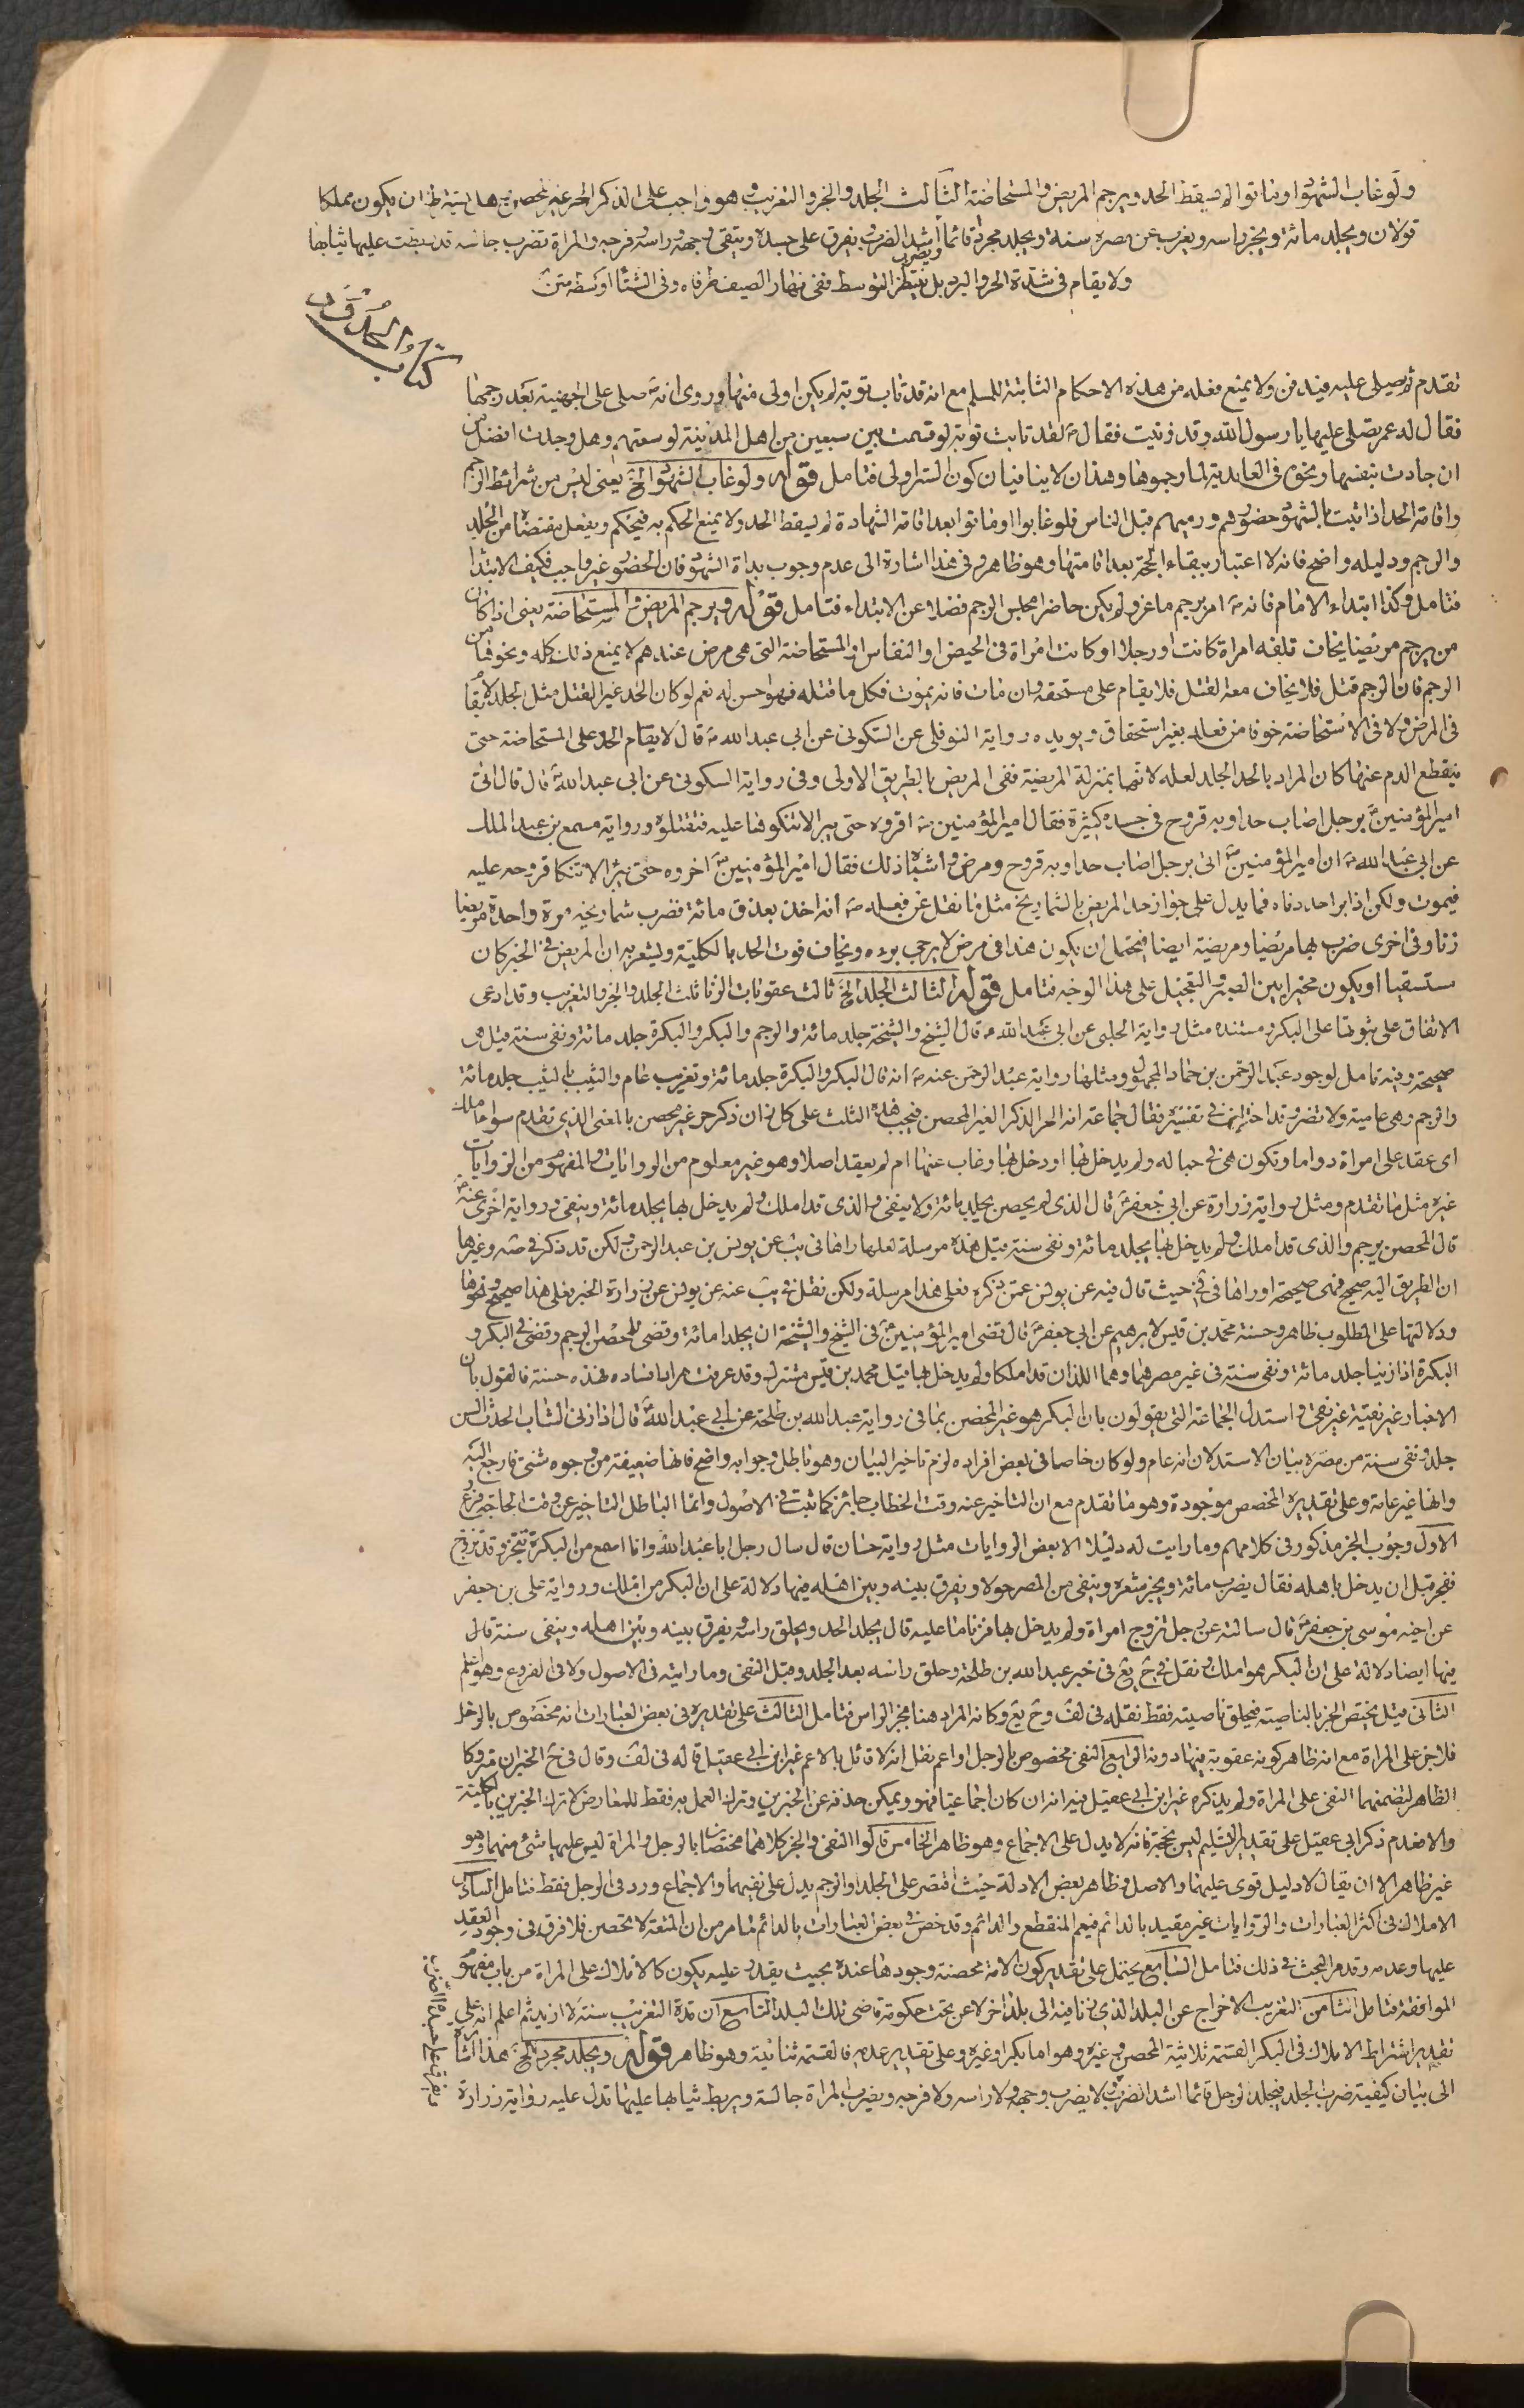 ولو غاب الشهود او ماتوا لم يسقط الحد ويرجم المريض والمستحاضة الثالث الجلد والجز والتغريب وهو واجب على الذكر الحر غير المحصن وهل يشترط ان يكون مملكا
قولان ويجلد مائة ويجز راسه ويغرب عن مصره سنة ويجلد مجردا قائما اشد الضرب ويفرق على جسده ويتقى وجهه وراسه وفرجه والمراة تضرب جالسة قد ربطت عليها ثيابها
ولا يقام في شدة الحر والبرد بل ينتظر التوسط ففي نهار الصيف طرفاه وفي الشتاء اوسطه متن
كتاب الحدود
تقدم ثم يصلى عليه فيدفن ولا يمنع فعله من هذه الاحكام الثابتة للمسلم مع انه قد تاب توبة لم يكن اولى منها وروى انه ص صلى على الجهنية بعد رجمها
فقال له عمر تصلى عليها يا رسول الله وقد زنيت فقال ص لقد تابت توبة لو قسمت بين سبعين من اهل المدينة لوسعتهم وهل وجدت افضل من
ان جادت بنفسها ونحوه في الغامدية لما رجموها وهذان لا ينافيان كون الستر اولى فتامل قوله ولو غاب الشهود الخ يعنى ليس من شرائط الرجم
واقامة الحد اذا ثبت بالشهود حضورهم ورميهم قبل الناس فلو غابوا او ماتوا بعد اقامة الشهادة لم يسقط الحد ولا يمنع الحكم به فيحكم ويفعل مقتضاه من الجلد
والرجم ودليله واضح فانه لا اعتبار ببقاء الحجة بعد اقامتها وهو ظاهر وفي هذا اشارة الى عدم وجوب بداة الشهود فان الحضور غير واجب فكيف الابتدا
فتامل وكذا ابتداء الامام فانه ص امر برجم ماعز ولم يكن حاضرا مجلس الرجم فضلا عن الابتداء فتامل قوله ويرجم المريض والمستحاضة يعنى اذا كان
من يرجم مريضا يخاف تلفه امراة كانت او رجلا او كانت امراة في الحيض او النفاس او المستحاضة التي هي مرض عندهم لا يمنع ذلك كله ونحوها من
الرجم فان الرجم قتل فلا يخاف معه القتل فلا يقام على مستحقه وان مات فانه يموت فكل ما قتله فهو احسن له نعم لو كان الحد غير القتل مثل الجلد لا يقام
في المرض ولا في الاستحاضة خوفا من فعله بغير استحقاق ويويده رواية النوفلى عن السكونى عن ابى عبد الله ع قال لا يقام الحد على المستحاضة حتى
ينقطع الدم عنها كان المراد بالحد الجلد لعله لانها بمنزلة المريضة ففى المريض بالطريق الاولى وفى رواية السكونى عن ابى عبد الله ع قال قال اتى
امير المؤمنين ع برجل اصاب حدا وبه قروح في جسده كثيرة فقال امير المؤمنين ع اقروه حتى يبرا لا تنكوها عليه فتقتلوه ورواية مسمع بن عبد الملك
عن ابى عبد الله ع ان امير المؤمنين ع اتى برجل اصاب حدا وبه قروح ومرض واشباه ذلك فقال امير المؤمنين ع اخروه حتى تبرا لا تنكا قروحه عليه
فيموت ولكن اذا برا حددناه فما يدل على جواز حد المريض بالشماريخ مثل ما نقل عن فعله ص انه اخذ بعذق مائة فضرب شماريخه مرة واحدة مريضا
زنا وفى اخرى ضرب بها مريضا ومريضة ايضا فيحتمل ان يكون هذا في مرض لا يرجى بروءه ويخاف فوت الحد بالكلية ويشعر به ان المريض في الخبر كان
مستسقيا او يكون مخيرا بين الصبر والتعجيل على هذا الوجه فتامل قوله الثالث الجلد الخ ثالث عقوبات الزنا ثلث الجلد والجز والتغريب وقد ادعى
الاتفاق على ثبوتها على البكر ومستنده مثل رواية الحلبى عن ابى عبد الله ع قال الشيخ والشيخة جلد مائة والرجم والبكر والبكرة جلد مائة ونفى سنة قيل هى
صحيحة وفيه تامل لوجود عبد الرحمن بن حماد المجهول ومثلها رواية عبد الرحمن عنه ع انه قال البكر والبكرة جلد مائة وتغريب عام والثيب بالثيب جلد مائة
والرجم وهى عامية ولا تضر وقد اختلف في تفسيره فقال جماعة انه الحر الذكر الغير المحصن فيجب هذه الثلث على كل زان ذكر حر غير محصن بالمعنى الذي تقدم سواء املك
اى عقد على امراة دواما وتكون هى في حباله ولم يدخل بها او دخل بها وغاب عنها ام لم يعقد اصلا وهو غير معلوم من الروايات والمفهوم من الروايات
غيره مثل ما تقدم ومثل رواية زرارة عن ابى جعفر ع قال الذى لم يحصن يجلد مائة ولا ينفى والذى قد املك ولم يدخل بها يجلد مائة وينفى ورواية اخرى عنه ع
قال المحصن يرجم والذى قد املك ولم يدخل بها يجلد مائة ونفى سنة قيل هذه مرسلة لعلها راها في يب عن يونس بن عبد الرحمن ولكن قد ذكر في ست وغيرها
ان الطريق اليه صحيح فهى صحيحة او راها في في حيث قال فيه عن يونس عمن ذكره فعلى هذا مرسلة ولكن نقل في يب عنه عن يونس عن زرارة الخبر فعلى هذا صحيح ونحوها
ودلالتها على المطلوب ظاهر وحسنة محمد بن قيس لابرهيم عن ابى جعفر ع قال قضى امير المؤمنين ع في الشيخ والشيخة ان يجلدا مائة وقضى للمحصن الرجم وقضى في البكر و
البكرة اذا زنيا جلد مائة ونفى سنة في غير مصرهما وهما اللذان قد املكا ولم يدخل بها قيل محمد بن قيس مشترك وقد عرفت مرارا فساده فهذه حسنة فالقول بان
الاخبار غير نقية غير نقى واستدل الجماعة التى يقولون بان البكر هو غير المحصن بما في رواية عبد الله بن طلحة عن ابى عبد الله ع قال اذا زنى الشاب الحدث السن
جلد ونفى سنة من مصره بيان الاستدلال انه عام ولو كان خاصا في بعض افراده لزم تاخير البيان وهو باطل وجوابه واضح فانها ضعيفة من وجوه شتى فارجع اليه
وانها غير عامة وعلى تقديره المخصص موجودة وهو ما تقدم مع ان التاخير عنه وقت الخطاب جائز كما ثبت في الاصول وانما الباطل التاخير عن وقت الحاجة فروع
الاول وجوب الجز مذكور في كلامهم وما رايت له دليلا الا بعض الروايات مثل رواية حنان قال سال رجل ابا عبد الله ع وانا اسمع عن البكر يفجر وقد تزوج
ففجر قبل ان يدخل باهله فقال يضرب مائة ويجز شعره وينفى من المصر حولا ويفرق بينه وبين اهله فيها دلالة على ان البكر من املك ورواية على بن جعفر
عن اخيه موسى بن جعفر ع قال سالته عن رجل تزوج امراة ولم يدخل بها فزنا ما عليه قال يجلد الحد ويحلق راسه ويفرق بينه وبين اهله وينفى سنة قال
فيها ايضا دلالة على ان البكر هو املك ونقل في خ يع في خبر عبد الله بن طلحة وحلق راسه بعد الجلد وقبل النفى وما رايته في الاصول ولا في الفروع وهو اعلم
الثانى قيل يختص الجز بالناصية فيحلق ناصيته فقط نقله في لف وخ يع وكانه المراد هنا بجز الراس فتامل الثالث على تقديره في بعض العبارات انه مخصوص بالرجل
فلا جز على المراة مع انه ظاهر كونه عقوبة فيها دونه الرابع النفى مخصوص بالرجل او اعم نقل انه لا قائل بالاعم غير ابن ابى عقيل قاله في لف وقال في خ الخبران متروكا
الظاهر لتضمنهما النفى على المراة ولم يذكره غير ابن ابى عقيل فيه انه ان كان اجماعيا فهو ويمكن حذفه عن الخبرين وترك العمل به فقط للمعارض لا ترك الخبرين بالكلية
والا فعدم ذكر ابى عقيل على تقدير التسليم ليس بحجة فانه لا يدل على الاجماع وهو ظاهر الخامس قالوا النفى والجز كلاهما مختصان بالرجل والمراة ليس عليها شئ منهما وهو
غير ظاهر الا ان يقال لا دليل قوى عليهما والاصل وظاهر بعض الادلة حيث اقتصر على الجلد والرجم يدل على نفيهما والاجماع ورد في الرجل فقط فتامل السادس
الاملاك في اكثر العبارات والروايات غير مقيد بالدائم فيعم المنقطع والدائم وقد خص في بعض العبارات بالدائم لما مر من ان المتعة لا تحصن فلا فرق في وجود العقد
عليها وعدمه وقد مر البحث في ذلك فتامل السابع يحتمل على تقدير كون الامة محصنة وجودها عنده بحيث يقدر عليه يكون كالاملاك على المراة من باب مفهوم
الموافقة فتامل الثامن التغريب الاخراج عن البلد الذي زنا فيه الى بلد اخر لا عن تحت حكومة قاضى تلك البلد التاسع ان مدة التغريب سنة لا ازيد ثم اعلم انه على
تقدير اشتراط الاملاك في البكر القسمة ثلاثية المحصن وغيره وهو اما بكر او غيره وعلى تقدير عدمه فالقسمة ثنائية وهو ظاهر قوله ويجلد مجردا الخ هذا اشارة
الى بيان كيفية ضرب الجلد فيجلد الرجل قائما اشد الضرب لا يضرب وجهه ولا راسه ولا فرجه ويضرب المراة جالسة ويربط ثيابها عليها تدل عليه رواية زرارة